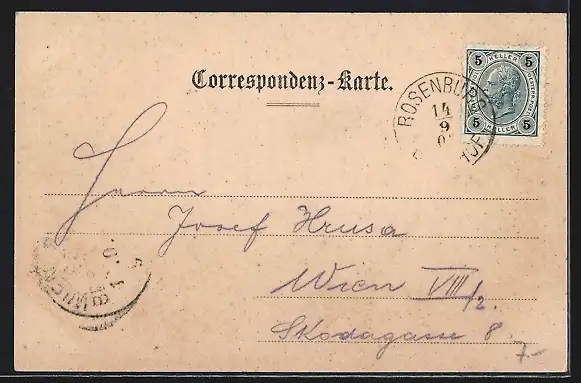 Correspondenz-Karte.
5 HELLER 5
5 HELLER 5
ROSENBURG
14
9
Herrn
Josef Hrusa
Wien VIII/2.
Skodagasse 8.
7-